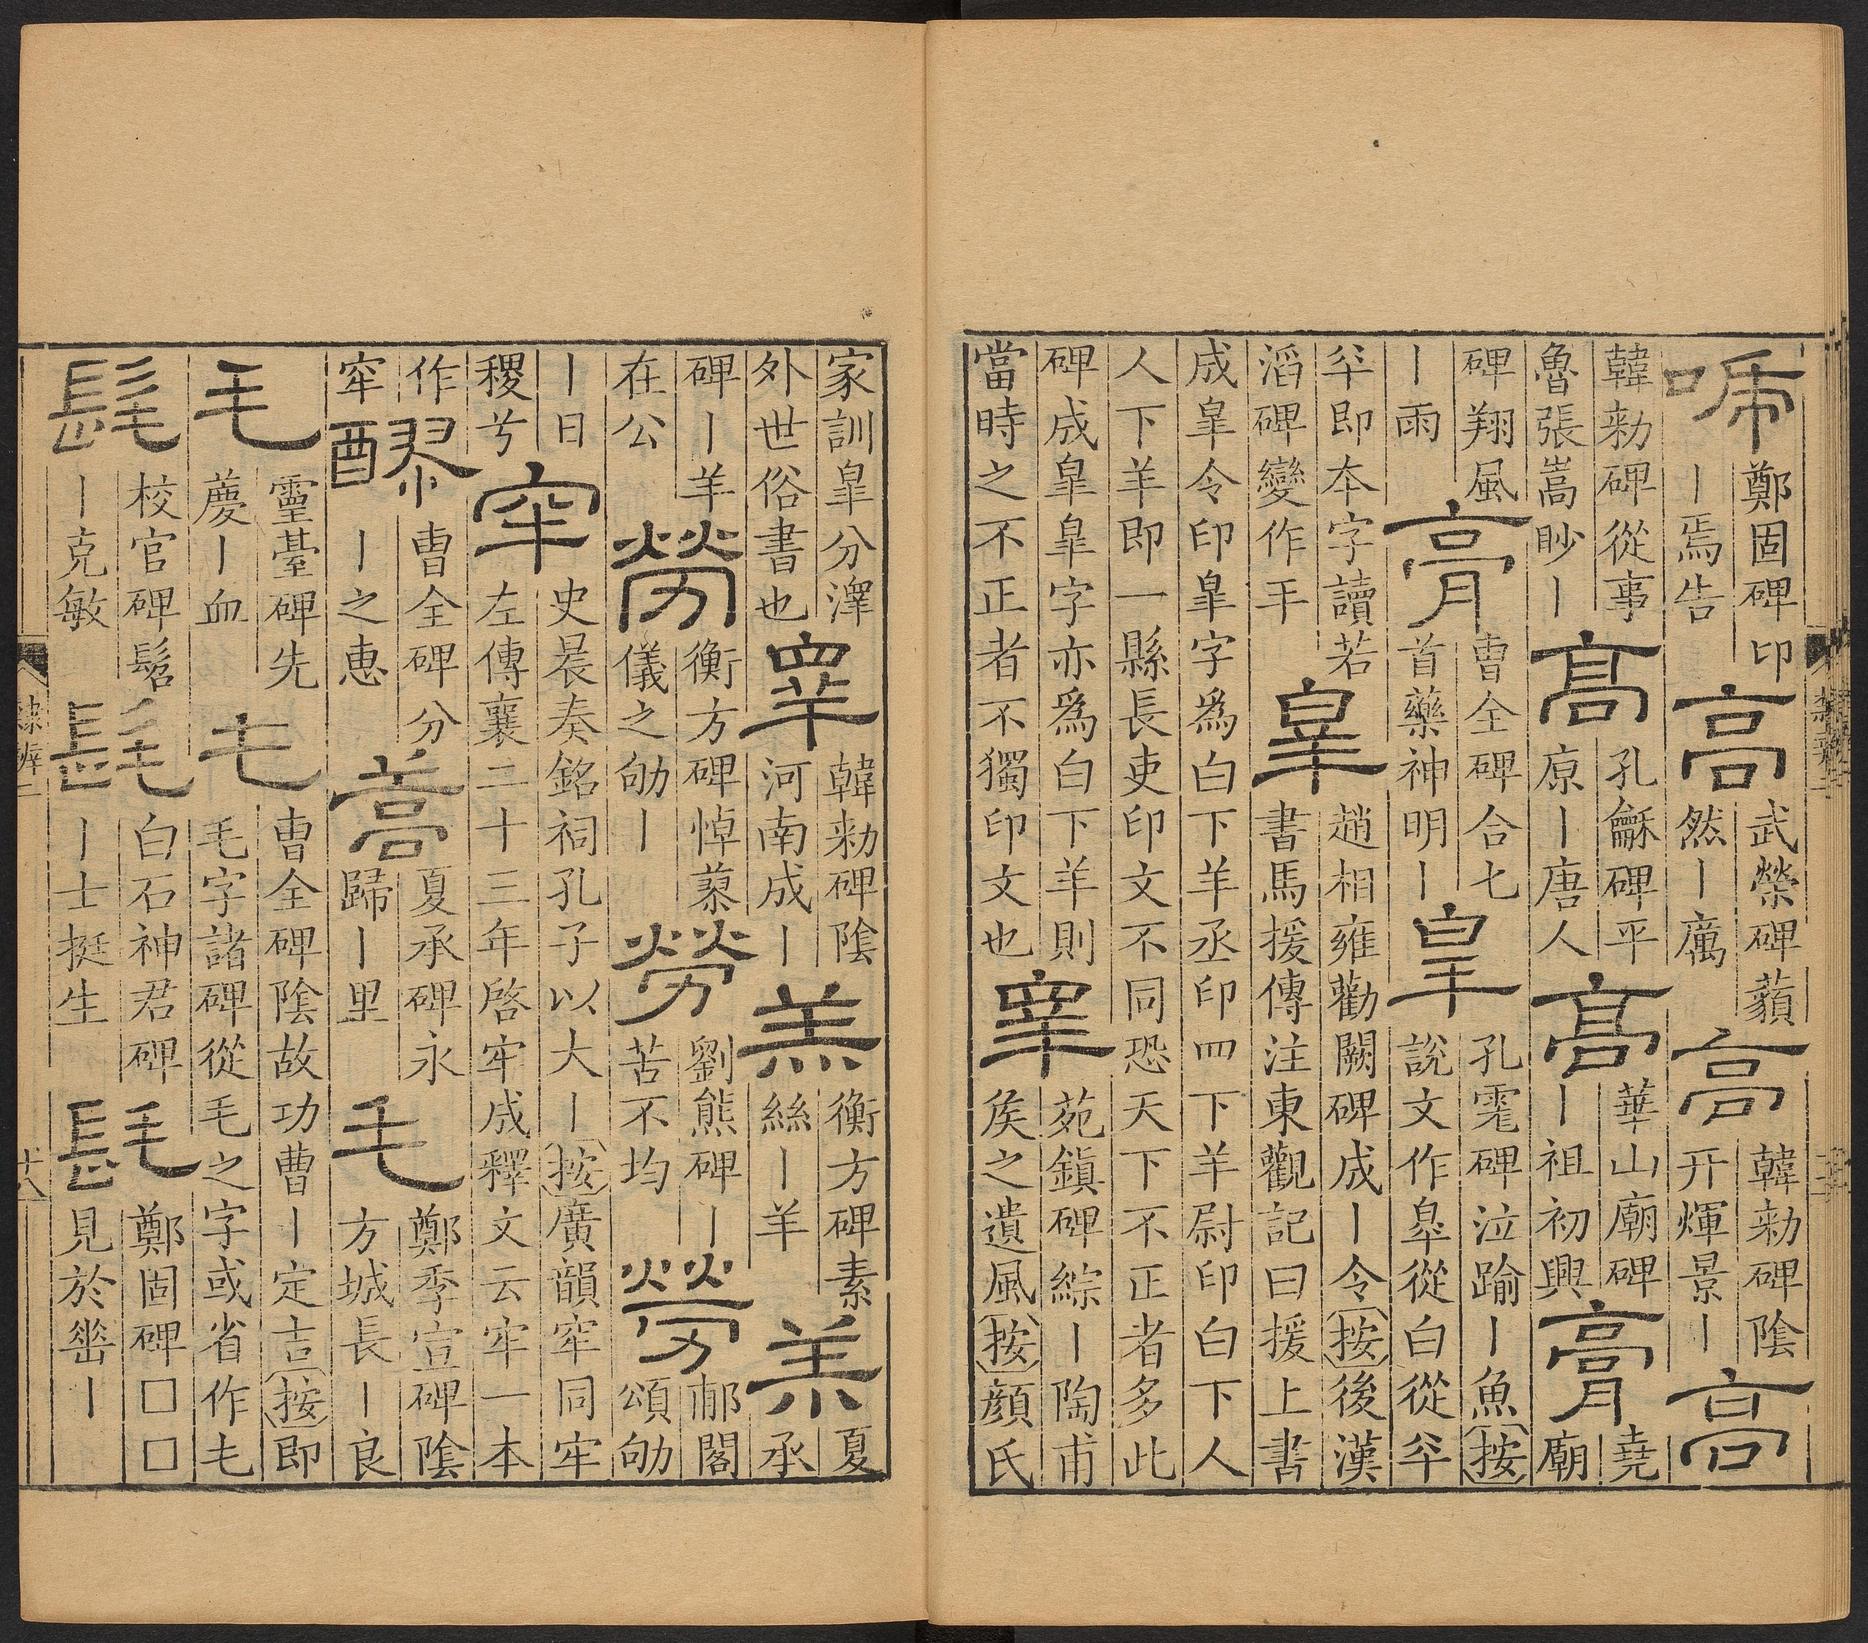 啼鄭固碑卬丨焉告高武榮碑藐然丨厲高韓勑碑陰幵輝景丨高
韓勑碑從事魯張嵩眇丨高孔龢碑平原丨唐人高華山廟碑丨祖初興膏堯廟
碑翔風丨雨膏曹全碑合七首藥神明丨皐孔宙碑泣踰丨魚按說文作皋從白從夲
夲即本字讀若滔碑變作𠦂皐趙相雍勸闕碑成丨令按後漢書馬援傳注東觀記曰援上書
成皐令印皐字爲白下羊丞印四下羊尉印白下人人下羊即一縣長吏印文不同恐天下不正者多此
碑成皐皐字亦爲白下羊則當時之不正者不獨印文也睪苑鎮碑綜丨陶甫侯之遺風按顏氏
家訓皐分澤外世俗書也睪韓勑碑陰河南成丨羔衡方碑素絲丨羊羔夏承
碑丨羊在公勞衡方碑悼蔂儀之劬丨勞劉熊碑丨苦不均勞郙閣頌劬
丨日稷兮窂史晨奏銘祠孔子以大丨按廣韻窂同牢左傳襄二十三年啓牢成釋文云牢一本
作窂醪曹全碑分丨之惠蒿夏承碑永歸丨里毛鄭季宣碑陰方城長丨良
毛靈臺碑先慶丨血毛曹全碑陰故功曹丨定吉按即毛字諸碑從毛之字或省作乇
髦校官碑髫丨克敏髦白石神君碑丨士挺生髦鄭固碑□□見於丨